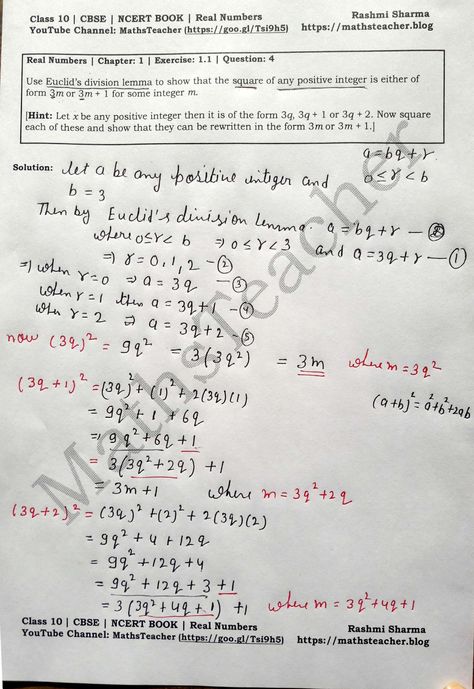 Class 10 | CBSE | NCERT BOOK | Real Numbers Rashmi Sharma
YouTube Channel: MathsTeacher (https://goo.gl/Tsi9h5) https://mathsteacher.blog
Real Numbers | Chapter: 1 | Exercise: 1.1 | Question: 4
Use Euclid's division lemma to show that the square of any positive integer is either of
form 3m or 3m + 1 for some integer m.
[Hint: Let x be any positive integer then it is of the form 3q, 3q + 1 or 3q + 2. Now square
each of these and show that they can be rewritten in the form 3m or 3m + 1.]
a = bq + r
Solution: Let a be any positive integer and 0 ≤ r < b
b = 3
Then by Euclid's division lemma. a = bq + r —
where 0 ≤ r < b ⇒ 0 ≤ r < 3 and a = 3q + r — ①
⇒ r = 0, 1, 2 — ②
⇒ when r = 0 ⇒ a = 3q — ③
when r = 1 then a = 3q + 1 — ④
when r = 2 ⇒ a = 3q + 2 — ⑤
now (3q)² = 9q² = 3(3q²) = 3m where m = 3q²
(3q + 1)² = (3q)² + (1)² + 2(3q)(1)
(a+b)² = a² + b² + 2ab
= 9q² + 1 + 6q
= 9q² + 6q + 1
= 3(3q² + 2q) + 1
= 3m + 1 where m = 3q² + 2q
(3q + 2)² = (3q)² + (2)² + 2(3q)(2)
= 9q² + 4 + 12q
= 9q² + 12q + 4
= 9q² + 12q + 3 + 1
= 3(3q² + 4q + 1) + 1 where m = 3q² + 4q + 1
Class 10 | CBSE | NCERT BOOK | Real Numbers Rashmi Sharma
YouTube Channel: MathsTeacher (https://goo.gl/Tsi9h5) https://mathsteacher.blog
MathsTeacher